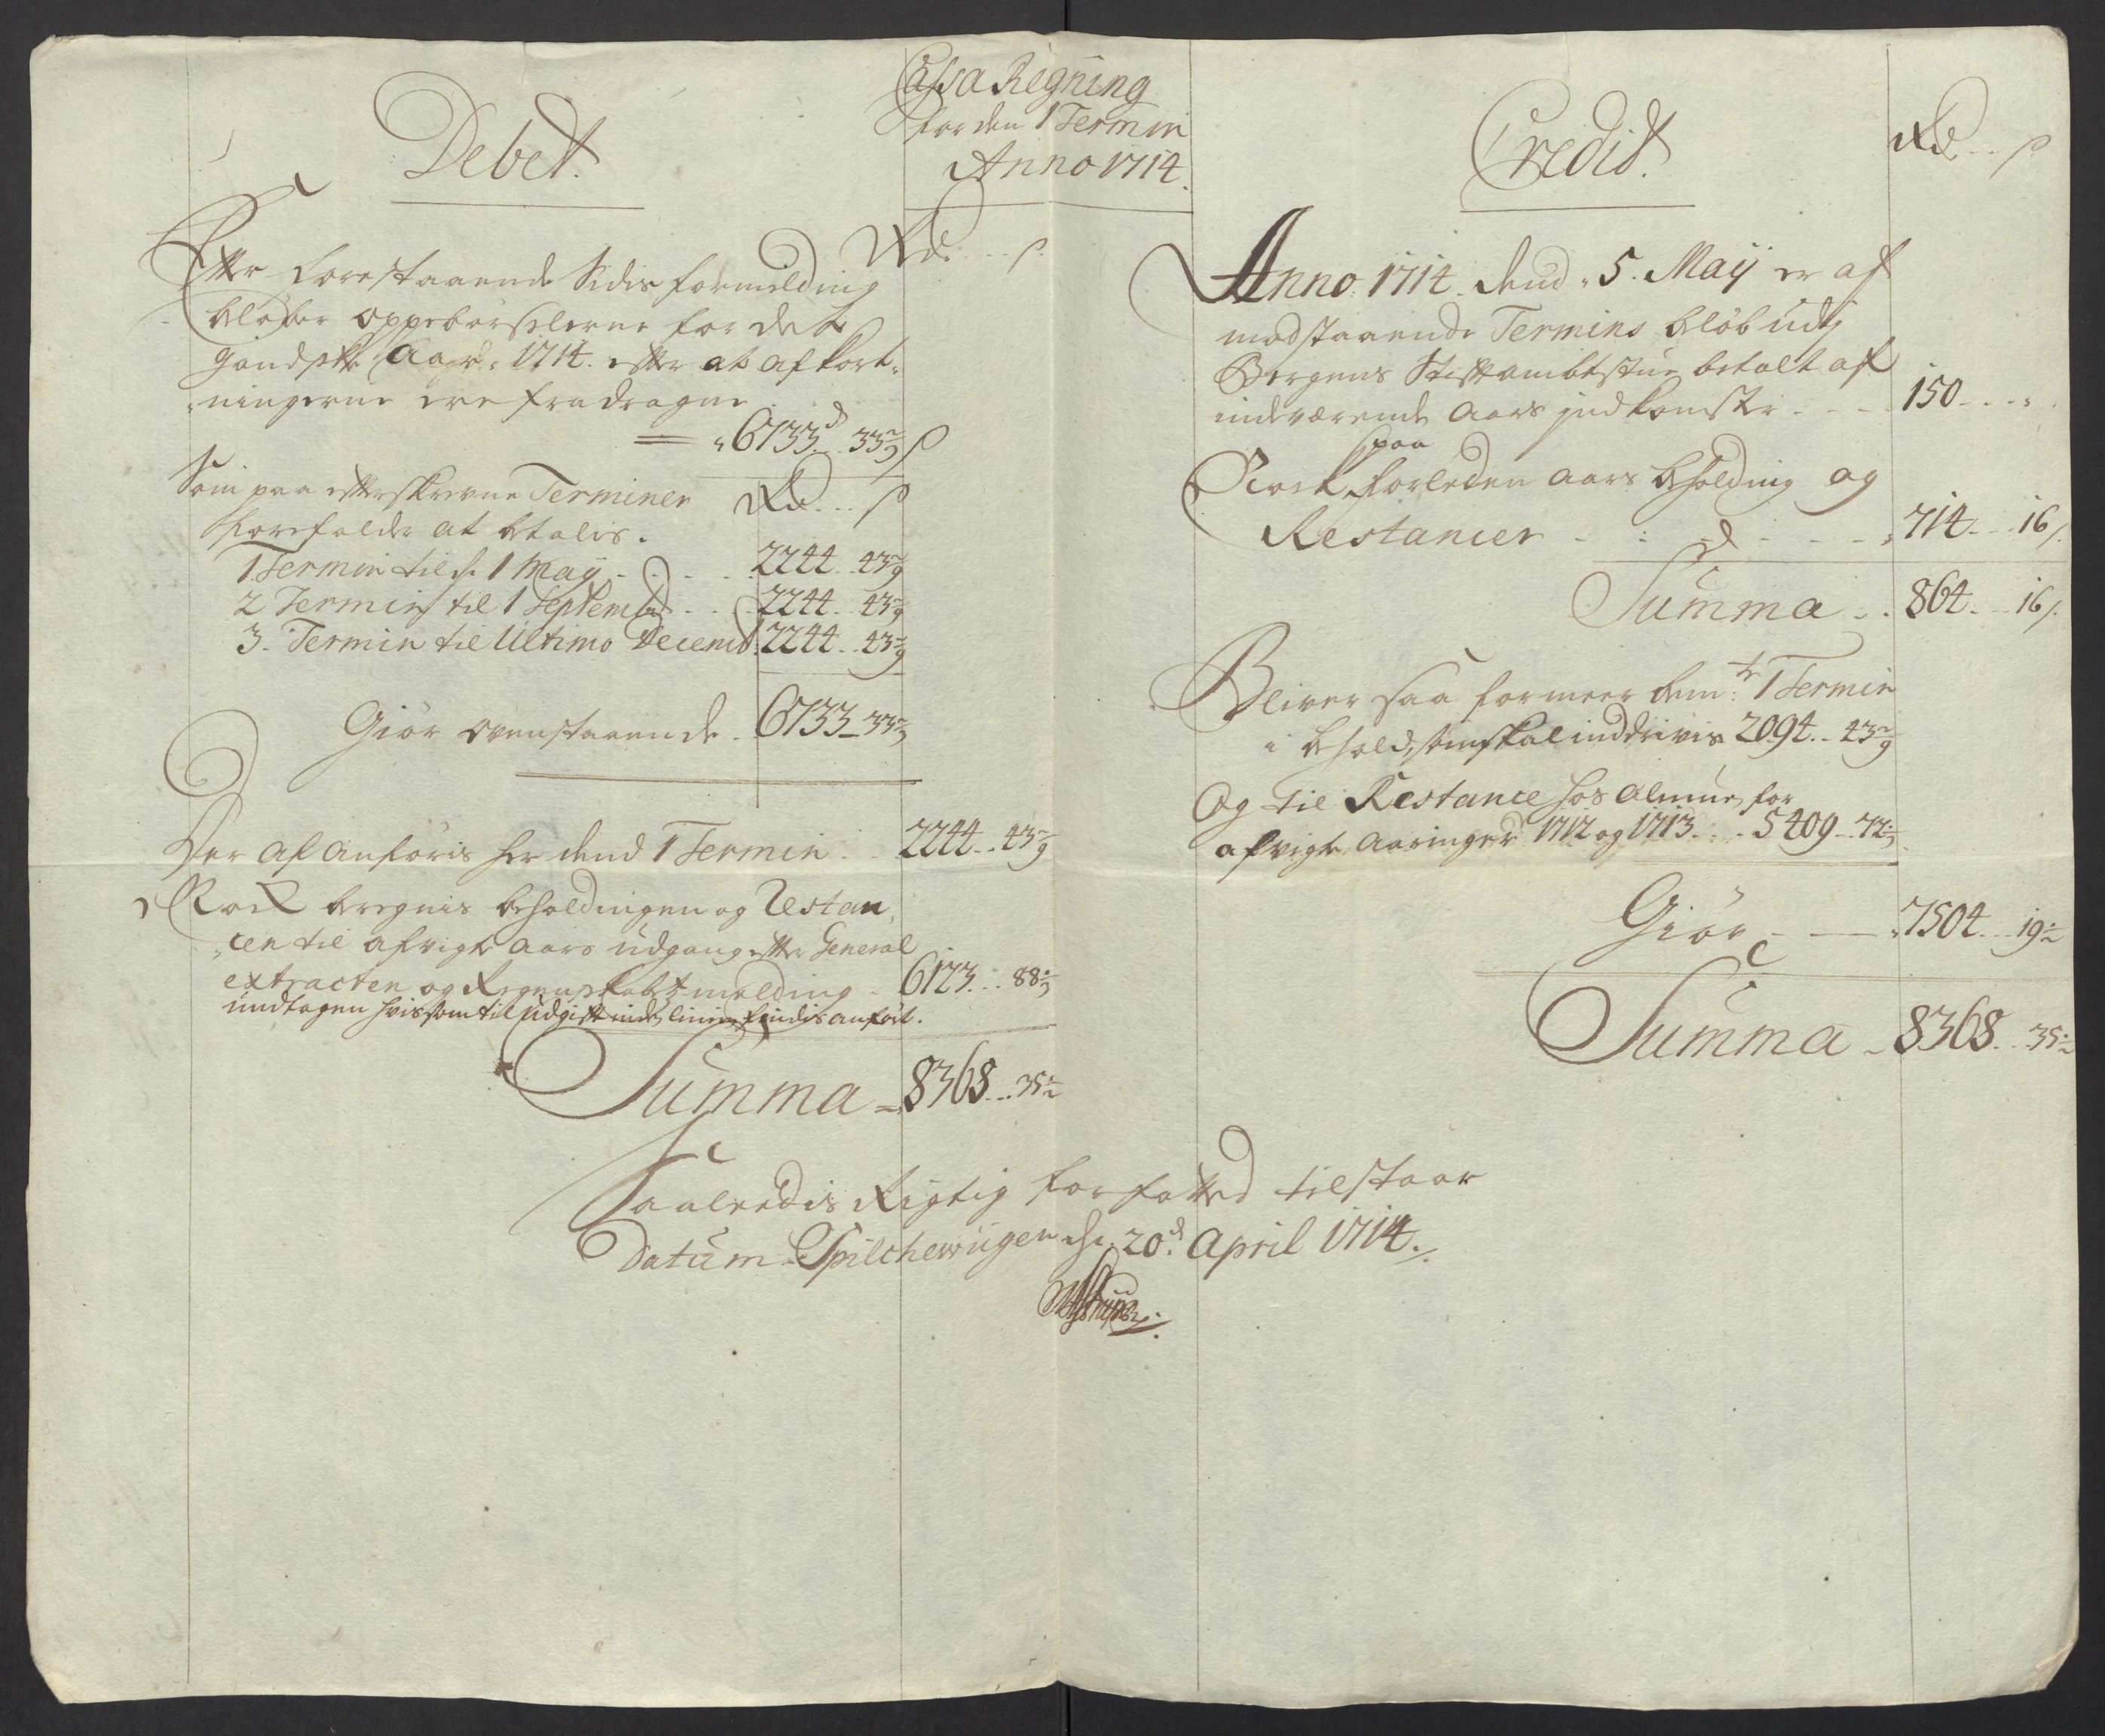 Cassa Regning
for den 1 Termin
Anno 1714.
Debet.
Rd. . . ß.
Efter forestaaende Sides formelding
beløber oppebørselerne for det
gandske Aar 1714. efter at afkort-
ningerne ere fradragne
6733 . . 33 ß
Som paa efterskrevne Terminer Rd. . . ß
forefalder at betalis.
1 Termin til d. 1 Maÿ . . . 2244 . . 43
2 Termin til 1 Septemb. . . 2244 . . 43
3. Termin til Ultimo Decemb. 2244 . . 43
Giør ovenstaaende . 6733 . . 33
Der af anføris her dend 1 Termin . . 2244 . . 43
Nock beregnis beholdingen og Restan-
cen til afvigte aars udgang efter General
extracten og Regenskabs melding . 6123 . . . 88
undtagen hvis som til udgift inden linien findis anført.
Summa . 8368 . . . 35
Credit.
Rd. . . ß
Anno 1714. dend 5. Maÿ er af
modstaaende Termins beløb udj
Bergens Stiftambtstue betalt af
indeværende aars jndkomster . . . 150 . . . .
Nock paa forleden aars beholding og
Restancer . . . . 714 . . 16 ß.
Summa . . 864 . . 16 ß.
Bliver saa for meer bem.te 1 Termin
i behold, som skal inddrivis 2094 . . 43
Og til Restance hos almuen for
afvigte aaringer 1712 og 1713 . . . 5409 . . 72
Giør . . . 7504 . . . 19
Summa . 8368 . . 35
Saaledis Rigtig forfatted tilstaar
Datum Spilchewiigen d. 20.d April 1714.